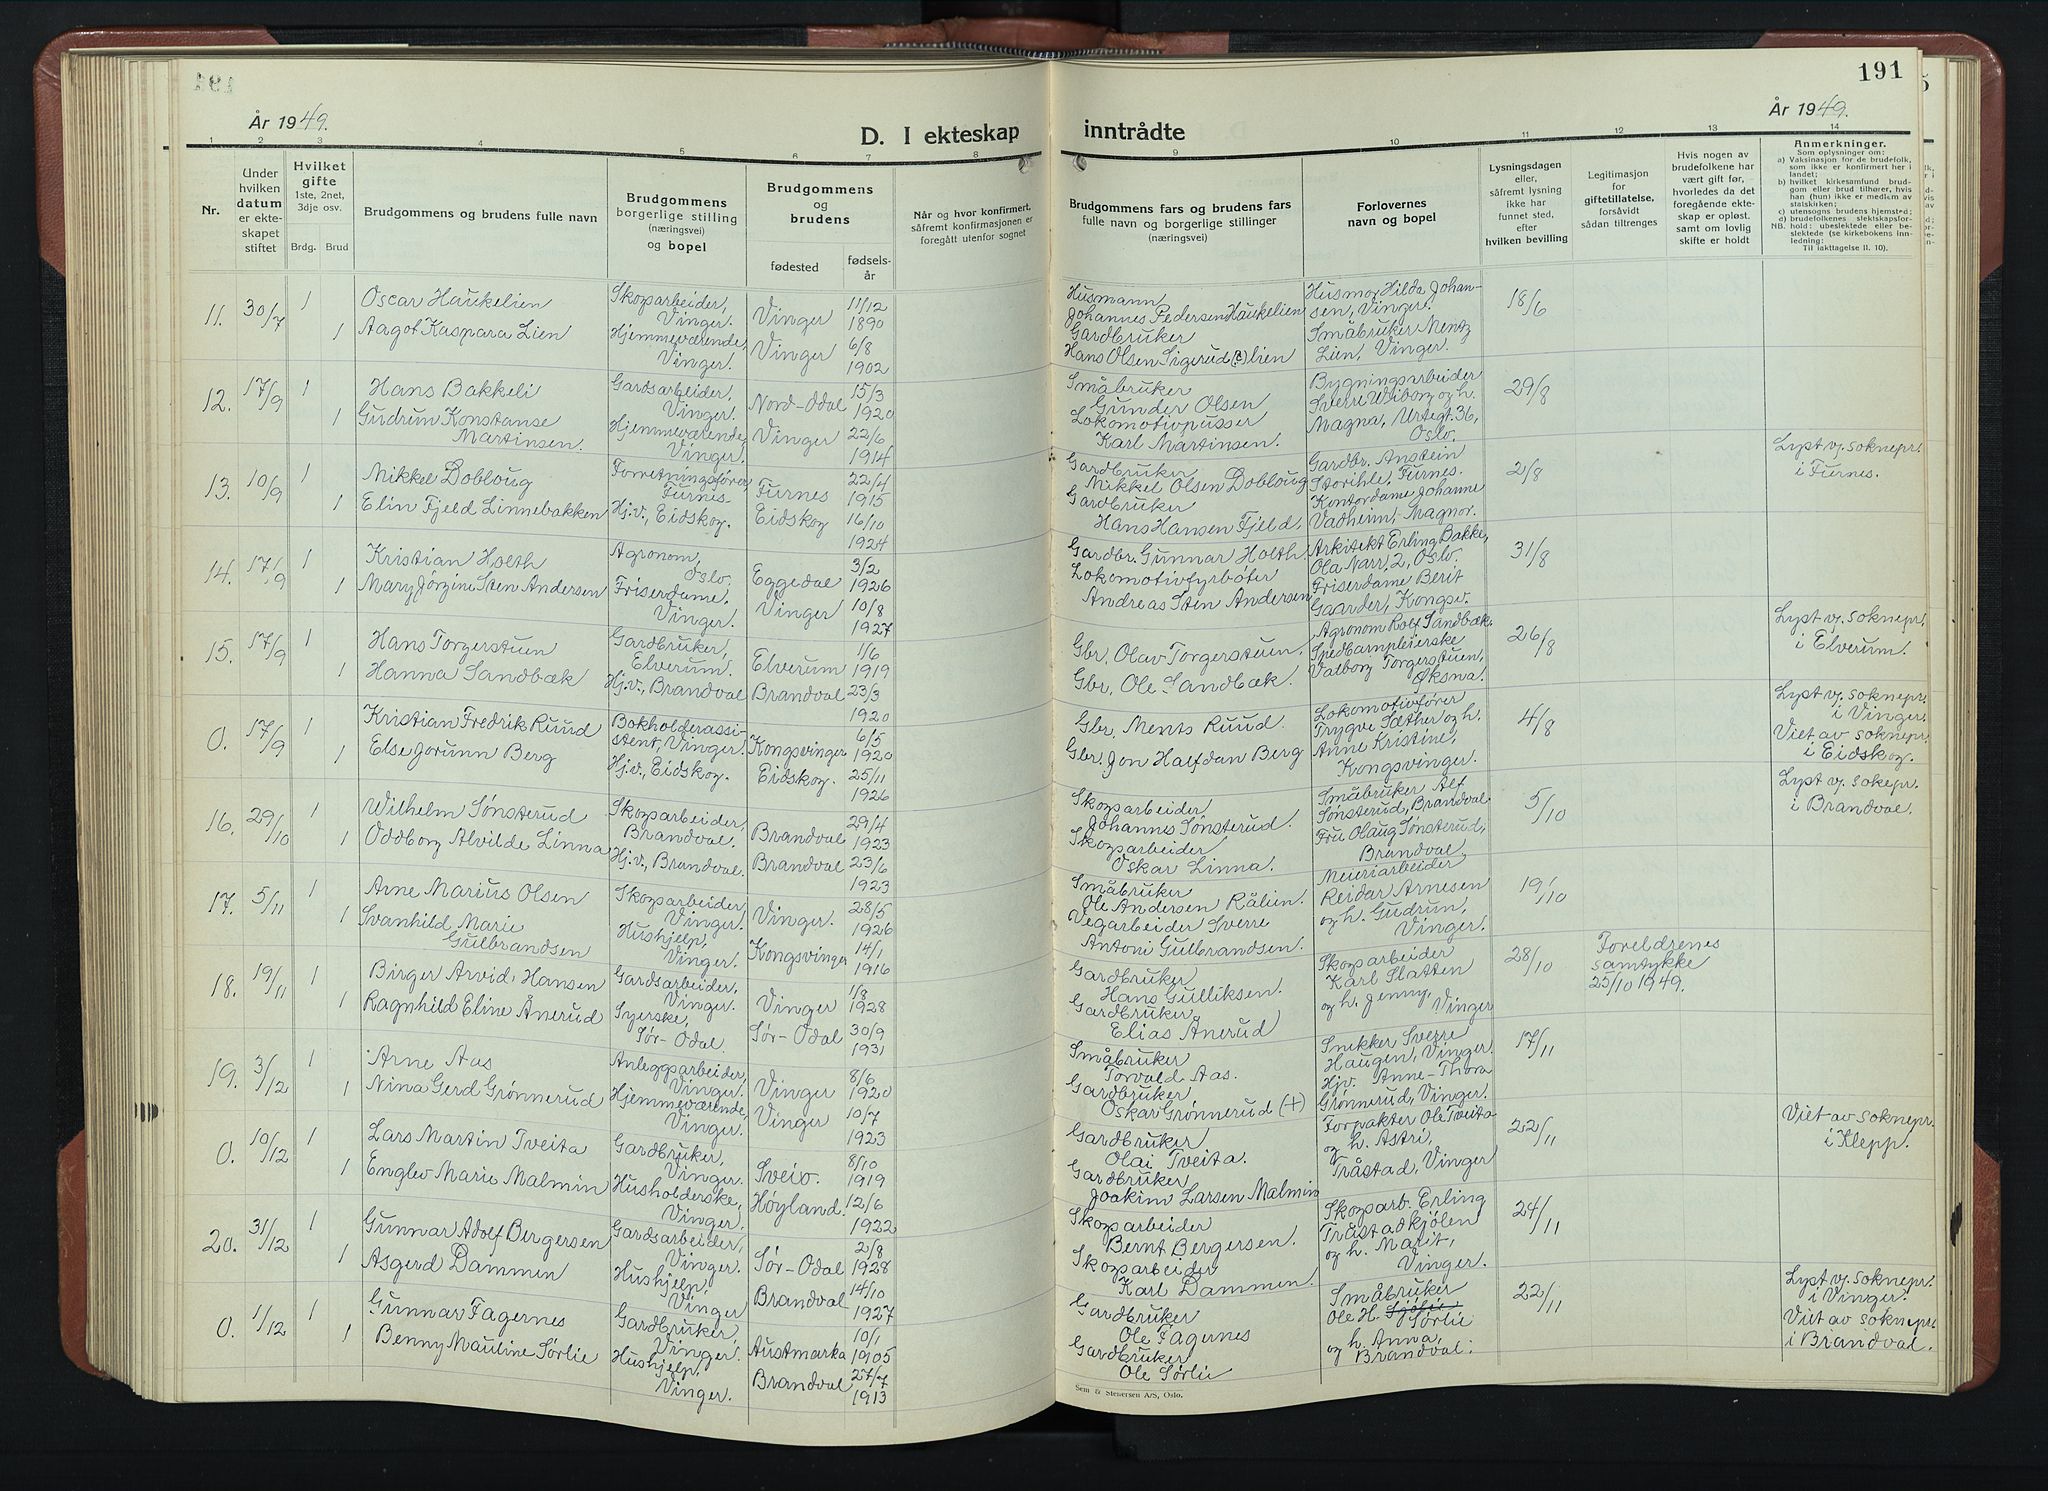 191
År 1949.
År 1949.
D. I ekteskap inntrådte
1 2 3 4 5 6 7 8 9 10 11 12 13 14
Nr.
Under hvilken datum er ekteskapet stiftet
Hvilket gifte 1ste, 2net, 3dje osv.
Brdg. Brud
Brudgommens og brudens fulle navn
Brudgommens borgerlige stilling (næringsvei) og bopel
Brudgommens og brudens
fødested
fødselsår
Når og hvor konfirmert, såfremt konfirmasjonen er foregått utenfor sognet
Brudgommens fars og brudens fars fulle navn og borgerlige stillinger (næringsvei)
Forlovernes navn og bopel
Lysningsdagen eller, såfremt lysning ikke har funnet sted, efter hvilken bevilling
Legitimasjon for giftetillatelse, forsåvidt sådan tiltrenges
Hvis nogen av brudefolkene har vært gift før, hvorledes da det foregående ekteskap er opløst, samt om lovlig skifte er holdt
Anmerkninger.
Som oplysninger om:
a) Vaksinasjon for de brudefolk, som ikke er konfirmert her i landet;
b) hvilket kirkesamfund brudgom eller brud tilhører, hvis han (hun) ikke er medlem av statskirken;
c) utensogns brudens hjemsted;
d) brudefolkenes slektskapsforhold: ubeslektede eller beslektede (se kirkebokens innledning:
NB.
Til iakttagelse II. 10).
11. 30/7 1 Oscar Haukelien Skogsarbeider, Vinger. Vinger 11/12 1890 Husmann Johannes Pedersen Haukelien Husmor Hilda Johansen, Vinger. 18/6
1 Aagot Kaspara Lien Hjemmeværende, Vinger. Vinger 6/8 1902 Gardbruker Hans Olsen Sigerud (?) lien Småbruker Mentz Lien, Vinger.
12. 17/9 1 Hans Bakkeli Gardsarbeider, Vinger. Nord-Odal 15/3 1920 Småbruker Gunder Olsen Bygningsarbeider Sverre Wiborg og h. 29/8
1 Gudrun Konstanse Martinsen. Hjemmeværende, Vinger. Vinger 22/6 1914 Lokomotivpusser Karl Martinsen. Magna, Urtegt. 36, Oslo.
13. 10/9 1 Mikkel Dobloug Forretningsfører, Furnes Furnes 22/4 1915 Gardbruker Mikkel Olsen Dobloug Gardbr. Anstein Storihle, Furnes. 2/8 Lyst v. soknepr. i Furnes.
1 Elin Fjeld Linnebakken Hj.v., Eidskog. Eidskog 16/10 1924 Gardbruker Hans Hansen Fjeld. Kontordame Johanne Vadheim, Magnor.
14. 17/9 1 Kristian Holth Agronom, Oslo. Eggedal 3/2 1926 Gardbr. Gunnar Holth. Arkitekt Erling Bakke, Ola Narr, 2, Oslo. 31/8
1 Mary Jørgine Sten Andersen Friserdame, Vinger. Vinger 10/8 1927 Lokomotivfyrbøter Andreas Sten Andersen Friserdame Berit Gaarder, Kongsv.
15. 17/9 1 Hans Torgerstuen Gardbruker, Elverum. Elverum 1/6 1919 Gbr. Olav Torgerstuen. Agronom Rolf Sandbæk. 26/8 Lyst v. soknepr. i Elverum.
1 Hanna Sandbæk Hj.v., Brandval Brandval 23/3 1920 Gbr. Ole Sandbæk. Spedbarnpleierske Valborg Torgerstuen, Øksna.
0. 17/9 1 Kristian Fredrik Ruud Bokholderassistent, Vinger. Kongsvinger 6/5 1920 Gbr. Ments Ruud. Lokomotivfører Trygve Sæther og h. 4/8 Lyst v. soknepr. i Vinger.
1 Else Jorunn Berg Hj.v., Eidskog. Eidskog. 25/11 1926 Gbr. Jon Halfdan Berg Anne Kristine, Kongsvinger. Viet av soknepr. i Eidskog.
16. 29/10 1 Wilhelm Sønsterud Skogsarbeider, Brandval. Brandval 29/4 1923 Skogsarbeider, Johannes Sønsterud. Småbruker Alf Sønsterud, Brandval. 5/10 Lyst v. sokepr. i Brandval.
1 Oddborg Alvilde Linna Hj.v., Brandval. Brandval 23/6 1923 Skogsarbeider Oskar Linna. Fru Olaug Sønsterud, Brandval.
17. 5/11 1 Arne Marius Olsen Skogsarbeider, Vinger. Vinger. 28/5 1926 Småbruker Ole Andersen Rålien. Meieriarbeider Reidar Arnesen 19/10
1 Svanhild Marie Gulbrandsen Hushjelp, Vinger. Kongsvinger 14/1 1916 Vegarbeider Sverre Antoni Gulbrandsen. og h. Gudrun, Vinger.
18. 19/11 1 Birger Arvid Hansen Gardsarbeider, Vinger. Vinger 1/8 1928 Gardbruker Hans Gulliksen. Skogsarbeider Karl Slatten 28/10 Foreldrenes samtykke 25/10 1949.
1 Ragnhild Eline Ånerud Syerske, Sør-Odal. Sør-Odal 30/9 1931 Gardbruker, Elias Ånerud og h. Jenny, Vinger
19. 3/12 1 Arne Aas Anleggsarbeider, Vinger. Vinger 8/6 1920 Småbruker Torvald Aas. Snekker Sverre Haugen, Vinger. 17/11
1 Nina Gerd Grønnerud Hjemmeværende, Vinger. Vinger 10/7 1923 Gardbruker, Oskar Grønnerud (+) Hjv. Anne-Thora Grønnerud, Vinger.
0. 10/12 1 Lars Martin Tveita Gardbruker, Vinger. Sveio. 8/10 1919 Gardbruker, Olai Tveita. Forpakter Ole Tveita og h. Astri, 22/11 Viet av soknepr. i Klepp.
1 Englev Marie Malmin Husholderske, Vinger. Høyland. 12/6 1922 Gardbruker, Joakim Larsen Malmin Tråstad, Vinger
20. 31/12 1 Gunnar Adolf Bergersen Gardsarbeider, Vinger. Sør-Odal 2/8 1928 Skogsarbeider Bernt Bergersen. Skogsarb. Erling Tråstadkjølen 24/11
1 Asgerd Dammen Hushjelp, Vinger Brandval 14/10 1927 Skogsarbeider Karl Dammen. og h. Marit, Vinger.
0. 1/12 1 Gunnar Fagernes Gardbruker, Vinger. Austmarka 10/1 1905 Gardbruker Ole Fagernes Småbruker Ole H. Sørlie 22/11 Lyst v. soknepr. i Vinger.
1 Benny Mauline Sørlie Hushjelp, Vinger. Brandval 27/7 1913 Gardbruker Ole Sørlie og h. Anna, Brandval. Viet av soknepr. i Brandval.
Sem & Stenersen A/S, Oslo.